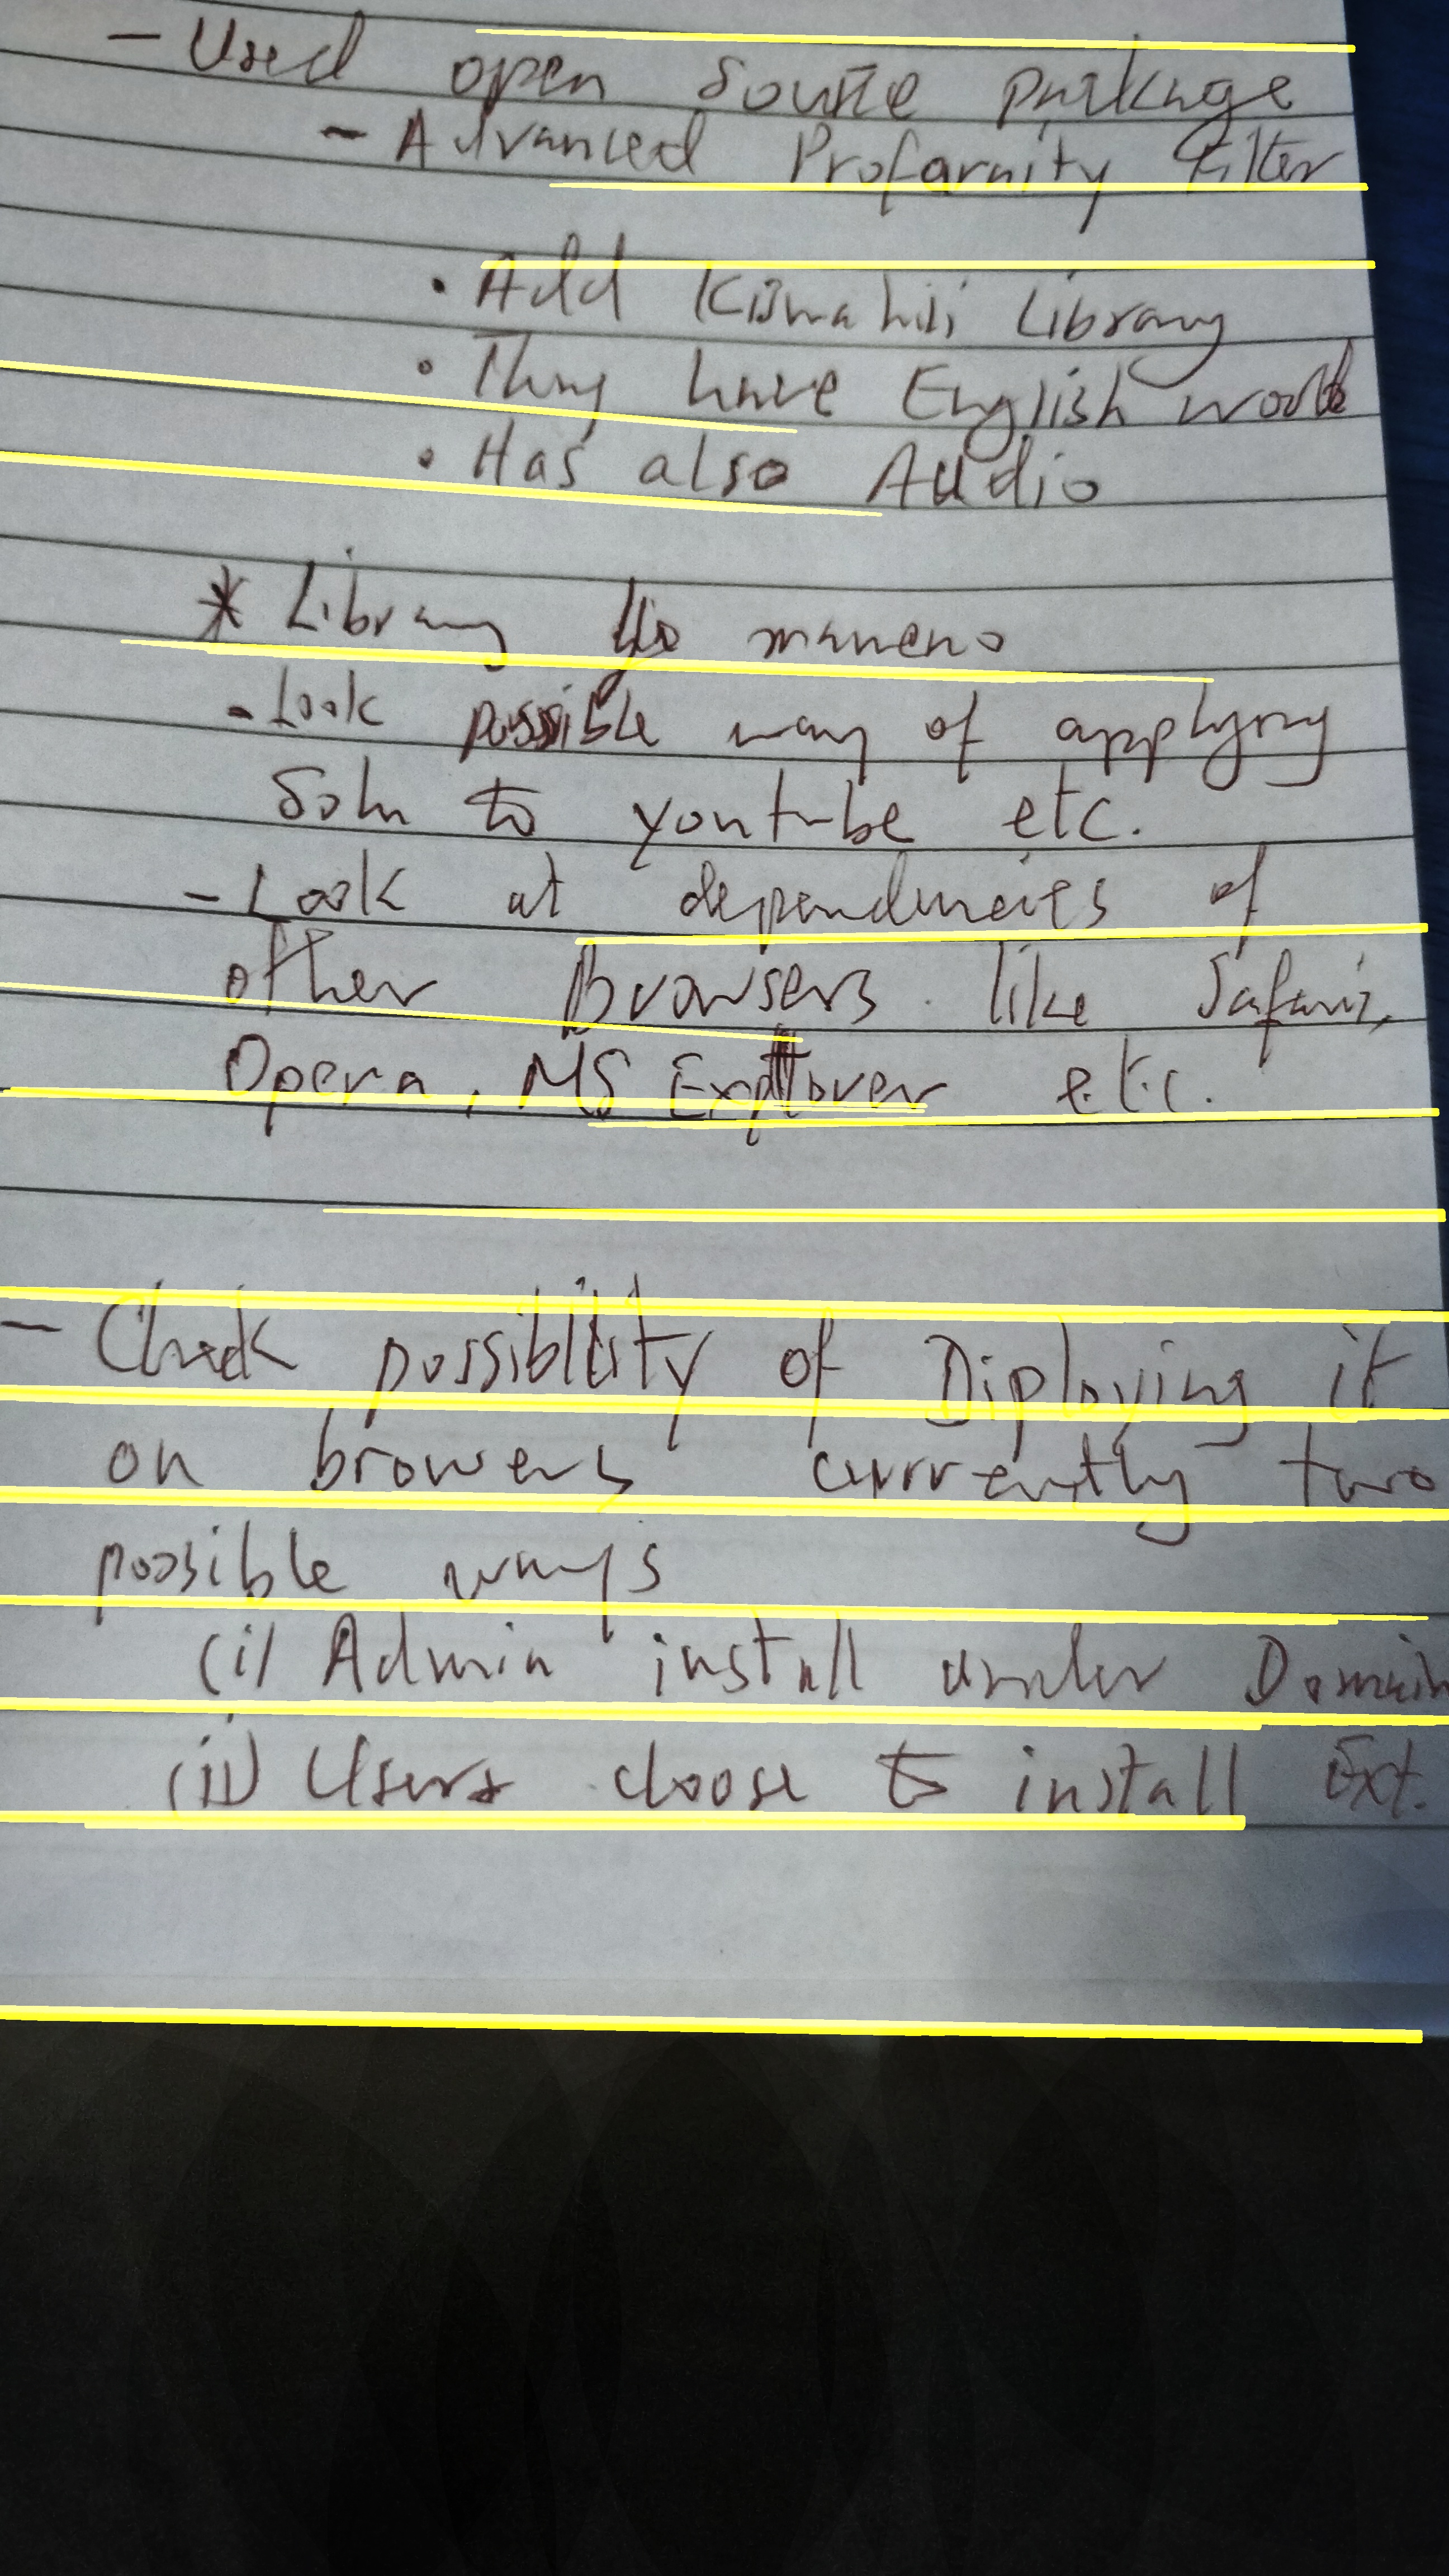 - Used open source package
- Advanced Profarnity Filter
• Add Kiswahili Library
• They have English words
• Has also Audio
* Library ya maneno
- Look possible way of applying
Soln to youtube etc.
- Look at dependencies of
other Browsers like Safari,
Opera, MS Explorer etc.
- Check possiblility of Diploying it
on browers currently two
possible ways
(i) Admin install under Domain
(ii) Users choose to install Ext.